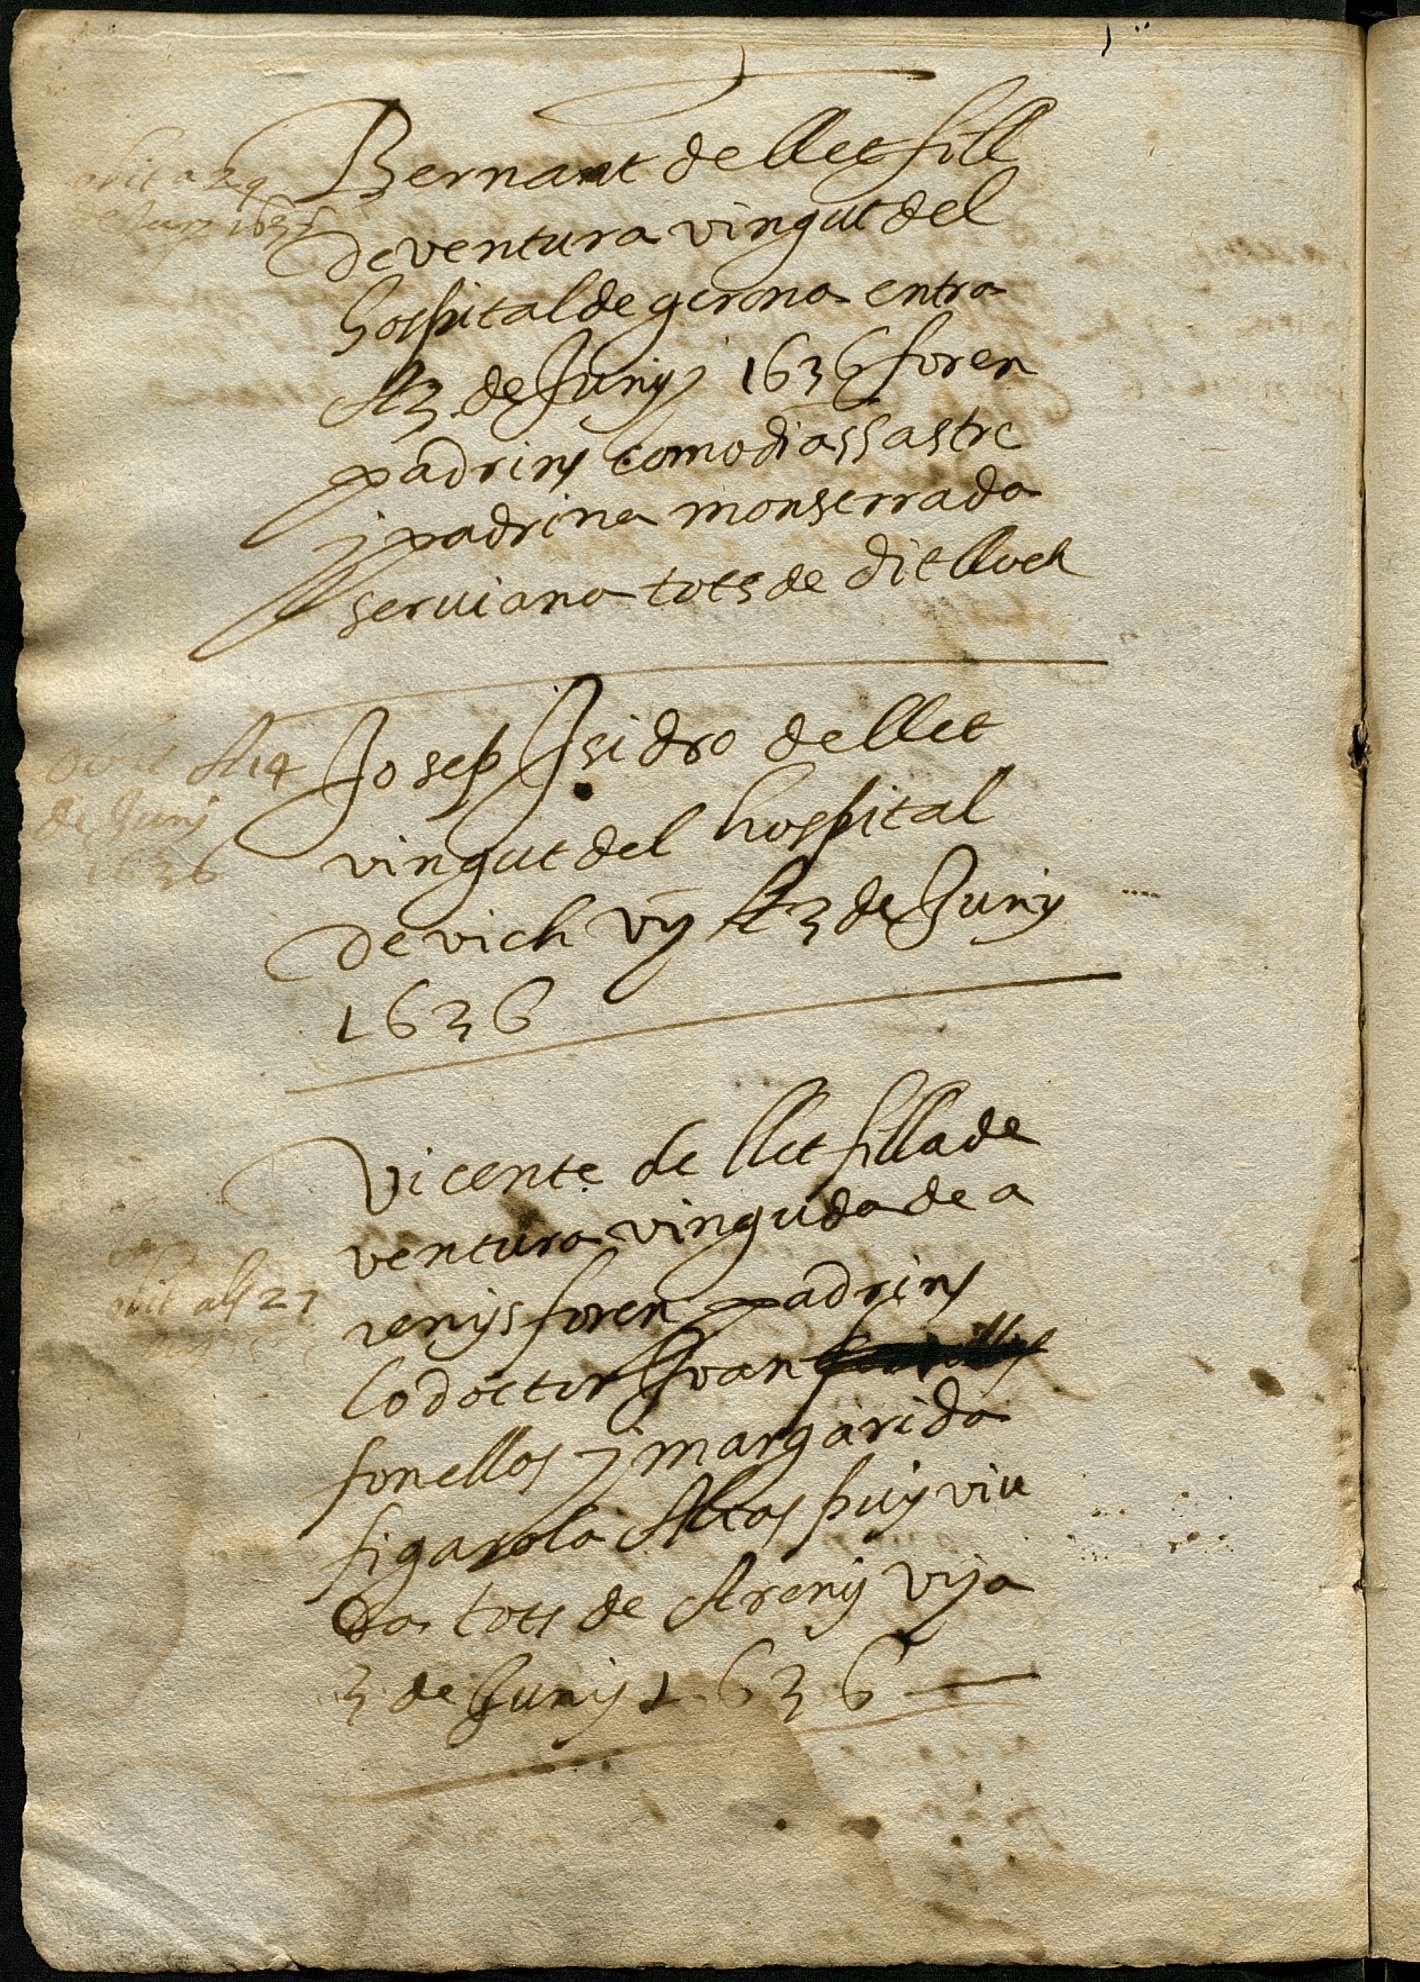 Bernant de llet fill
de ventura vingut del
hospital de gerona entra
A 3 de Juny 1636 foren
padrins como dias sastre
y padrina monserrada
serviana tots de dit lloch
obit a 29
de Juny 1636
Josep Isidro de llet
vingut del hospital
de vich vỹ A 3 de Juny
1636
obit A 14
de Juny
1636
Vicente de llet filla de
ventura vinguda de a
renys foren padrins
lo doctor Juan
fonellos y margarida
figarola Altas puiy viu
da tots de Areny vÿ a
3 de Juny 1636
obit als 27